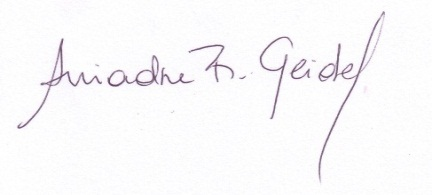 Ariadne Fr. Geidel